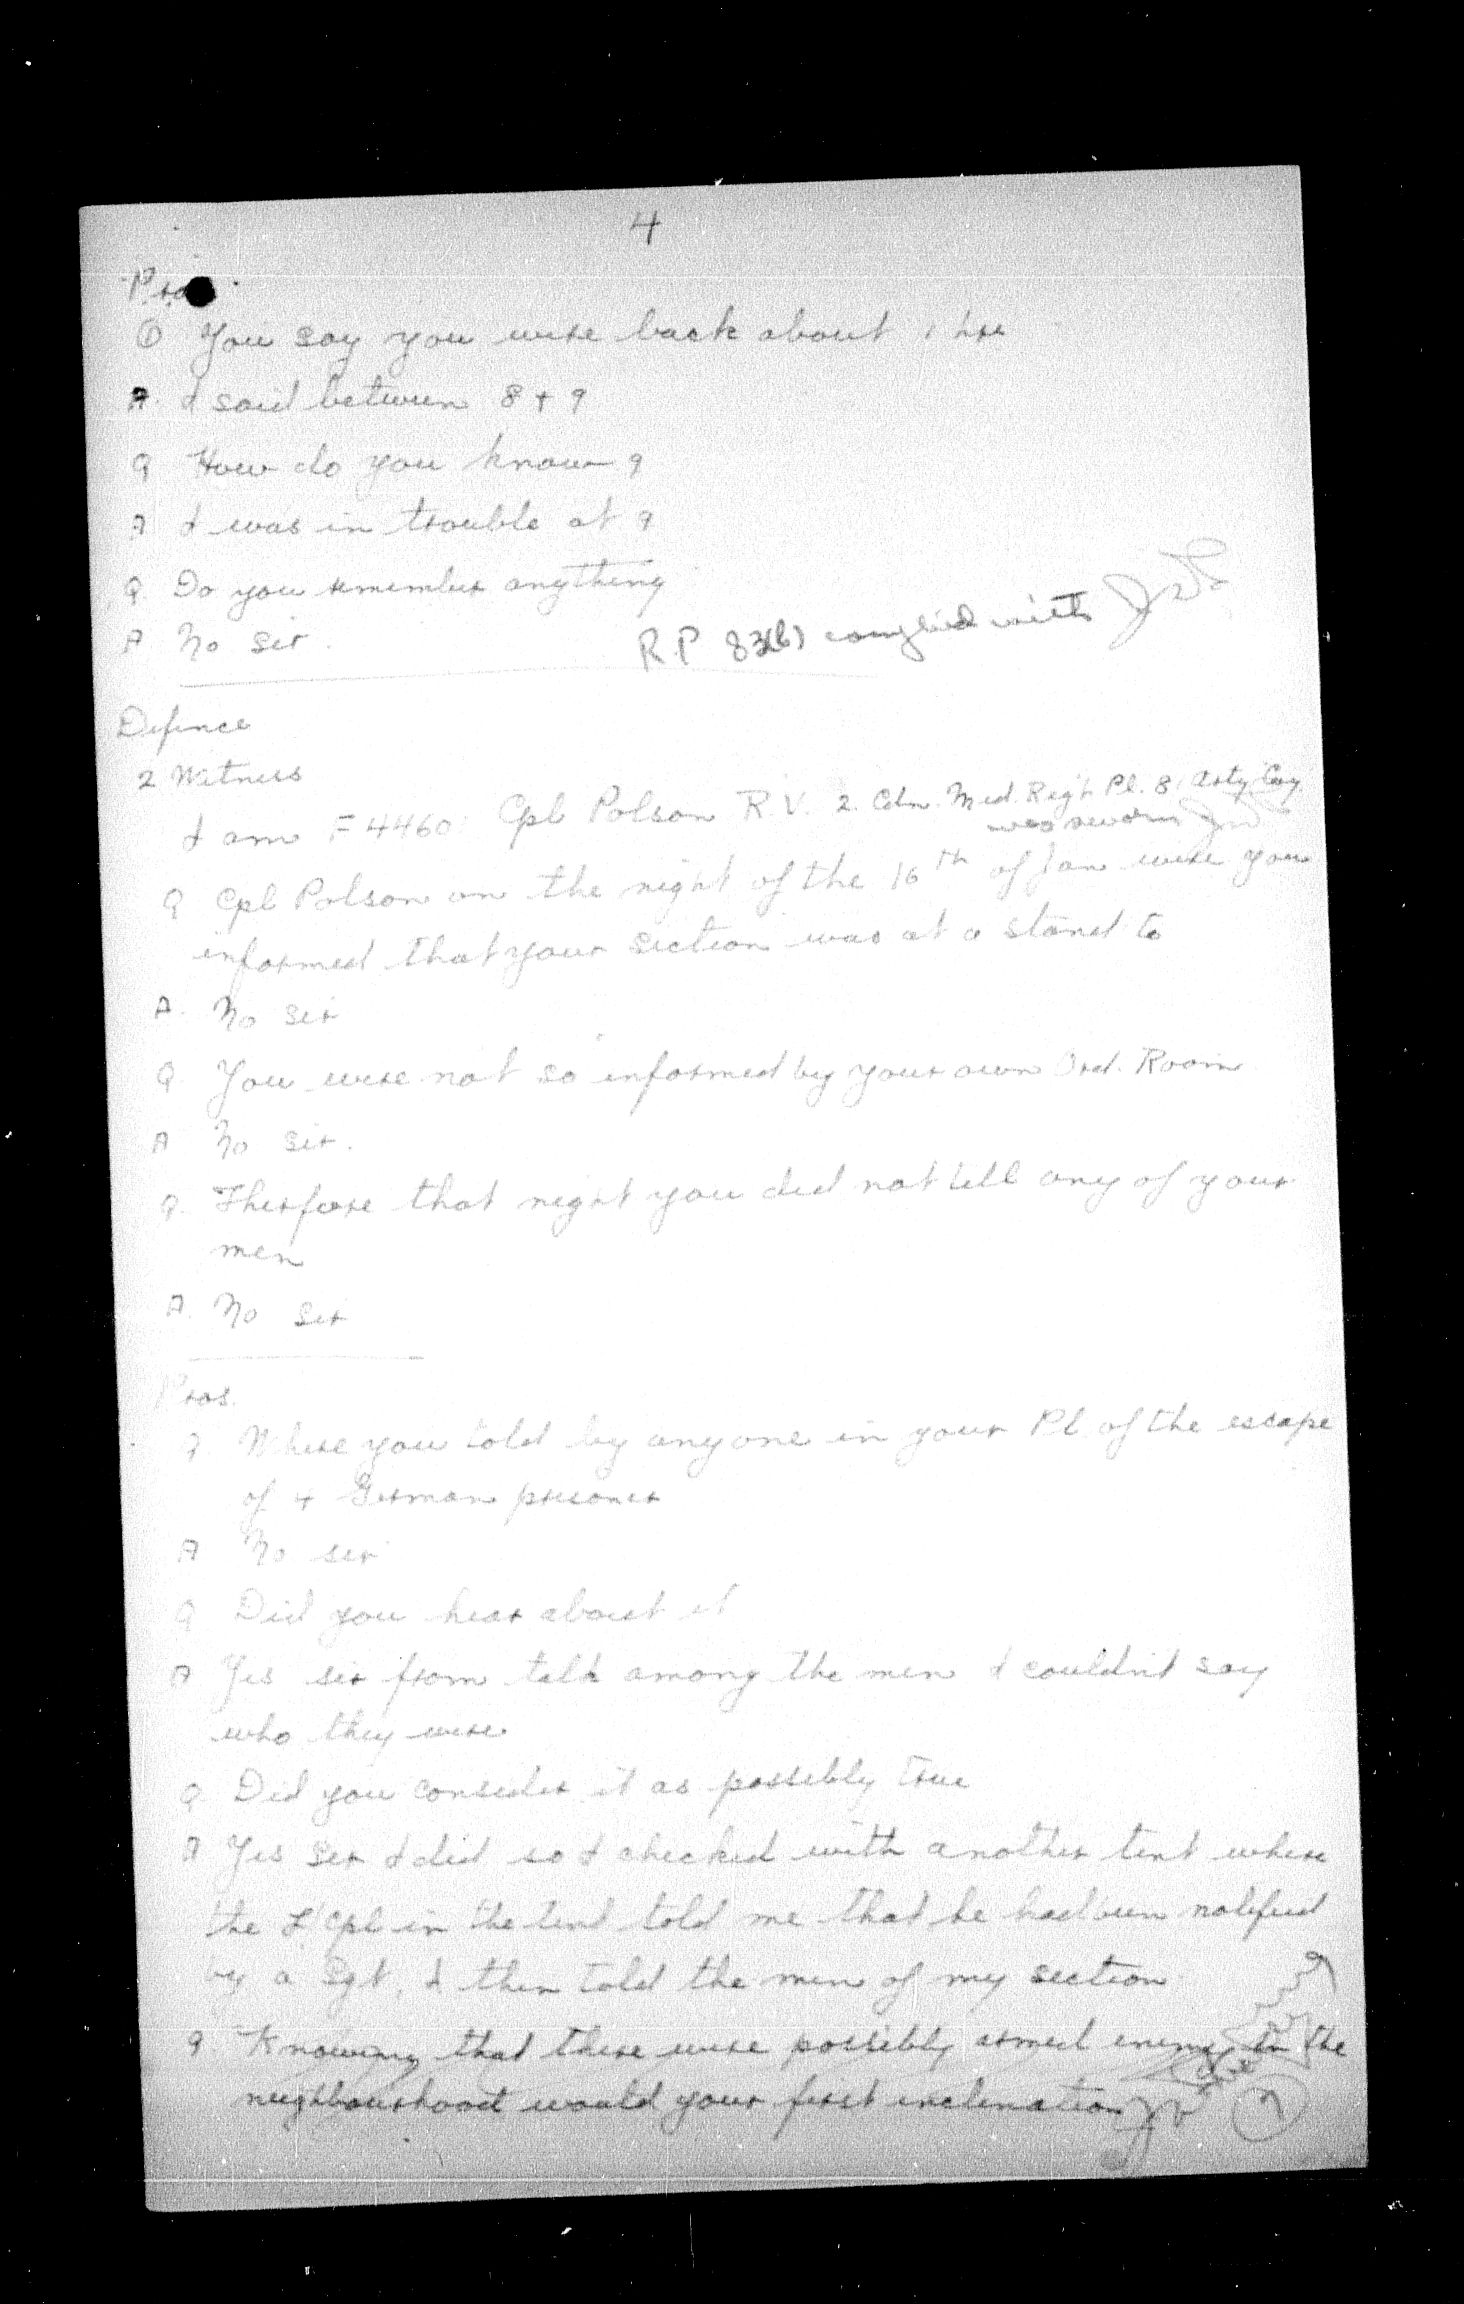 4
Pros.
Q You say you were back about 1 hr
A. I said between 8 + 9
Q How do you know 9
A I was in trouble at 9
Q Do you remember anything
A No Sir.
R.P 83(b) complied with
Defence
2 Witness
I am F 4460 Cpl Polson R.V. 2. Cdn. Med. Regt. Pl. 8, Arty Coy.
was sworn
Q Cpl Polson on the night of the 16th of Jan were you
informed that your section was at a stand to
A. No Sir
Q You were not so informed by your own Ord. Room
A No Sir.
Q. Therfore that night you did not tell any of your
men
A. No Sir
Pros.
Q Where you told by anyone in your Pl of the escape
of 4 German prisoner
A No sir
Q Did you hear about it
A Yes sir from talk among the men I couldn't say
who they were
Q Did you consider it as possibly true
A Yes Sir I did so I checked with another tent where
the L/Cpl in the tent told me that he had been notified
by a Sgt, I then told the men of my section
Q Knowing that there were possibly armed enemy in the
neighbourhood would your first inclination